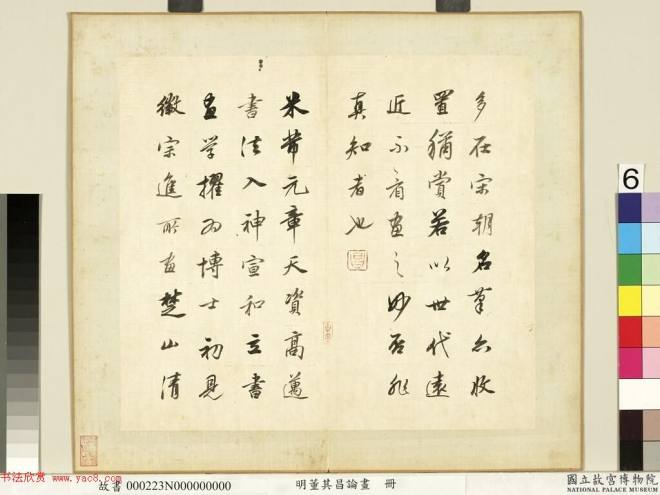 多在宋朝名筆亦收
置稱賞若以世代遠
近不看畫之妙否非
真知者也
米芾元章天資高邁
書法入神宣和立書
畫學擢為博士初見
徽宗進所畫楚山清
6
书法欣赏 www.yac8.com
故書 000223N000000000
明董其昌論畫 冊
國立故宮博物院
NATIONAL PALACE MUSEUM